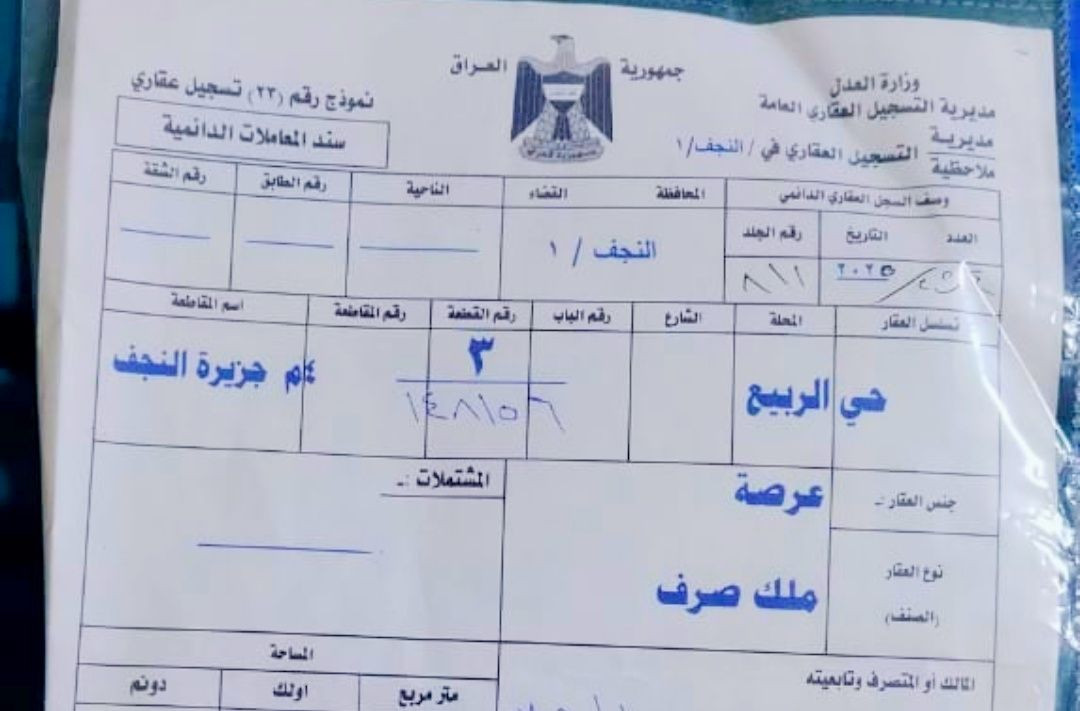 جمهورية العراق
وزارة العدل
مديرية التسجيل العقاري العامة
مديرية
ملاحظية التسجيل العقاري في / النجف/١
نموذج رقم (٢٣) تسجيل عقاري
سند المعاملات الدائمية
وصف السجل العقاري الدائمي المحافظة القضاء الناحية رقم الطابق رقم الشقة
العدد التاريخ رقم الجلد
النجف / ١
٢٠٢٥ ٨١١
تسلسل العقار المحلة الشارع رقم الباب رقم القطعة رقم المقاطعة اسم المقاطعة
حي الربيع ٣ ٤م جزيرة النجف
١٤٨١٥٦
جنس العقار :- عرصة المشتملات :-
نوع العقار ملك صرف
(الصنف)
المساحة
المالك أو المتصرف وتابعيته
متر مربع اولك دونم